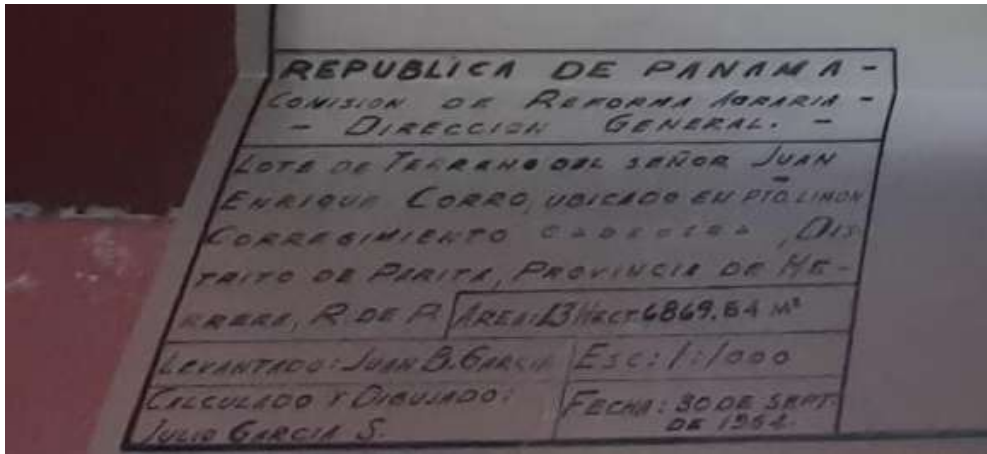 REPUBLICA DE PANAMA -
COMISION DE REFORMA AGRARIA -
- DIRECCION GENERAL. -
LOTE DE TERRENO DEL SEÑOR JUAN
ENRIQUE CORRO, UBICADO EN PTO. LIMON
CORREGIMIENTO , DIS-
TRITO DE PARITA, PROVINCIA DE HE-
RRERA, R. DE P. AREA: 13 HECT 6869.64 M²
LEVANTADO: JUAN B. GARCIA ESC: 1:1000
CALCULADO Y DIBUJADO: FECHA: 30 DE SEPT.
JULIO GARCIA S. DE